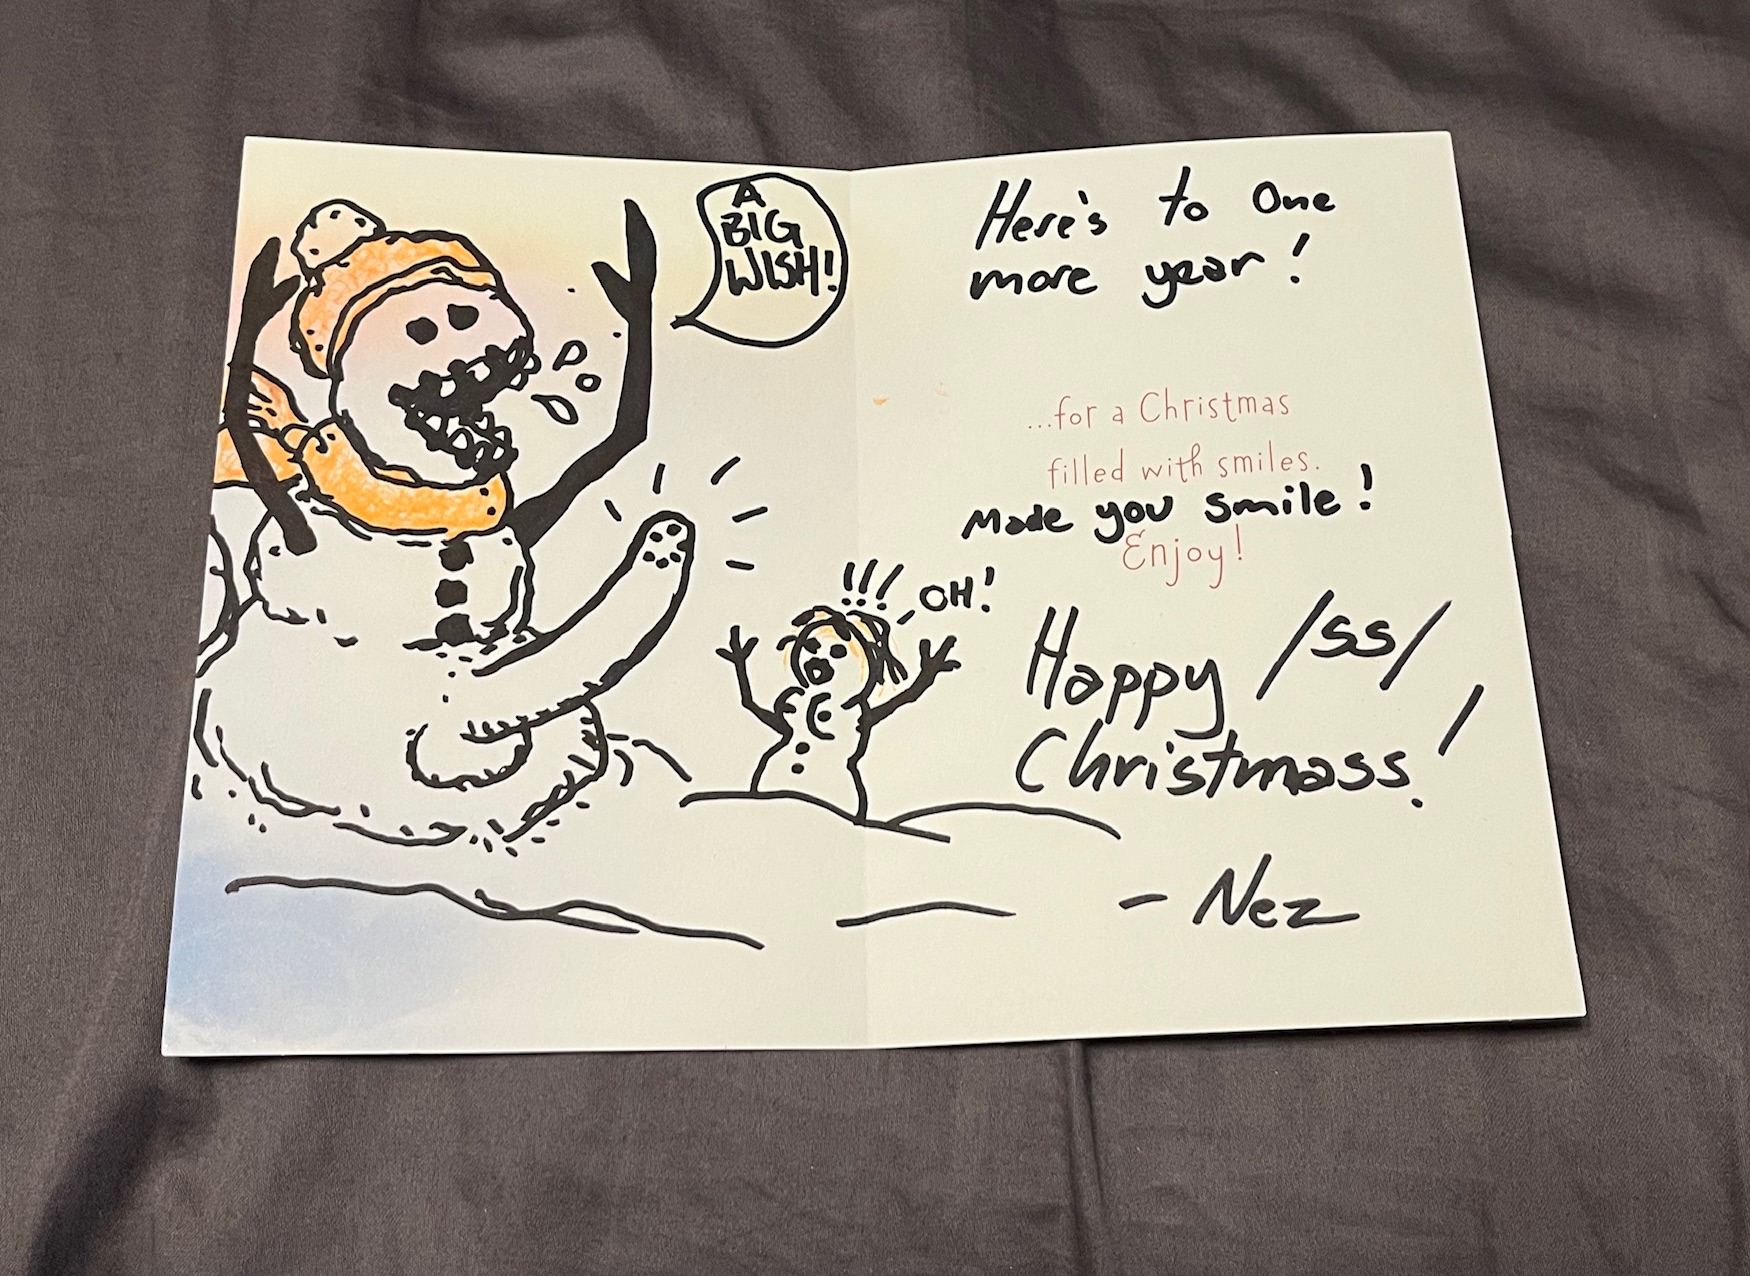 A
BIG
WISH!
OH!
Here's to One
more year!
...for a Christmas
filled with smiles.
Made you smile!
Enjoy!
Happy /ss/
Christmass!
- Nez